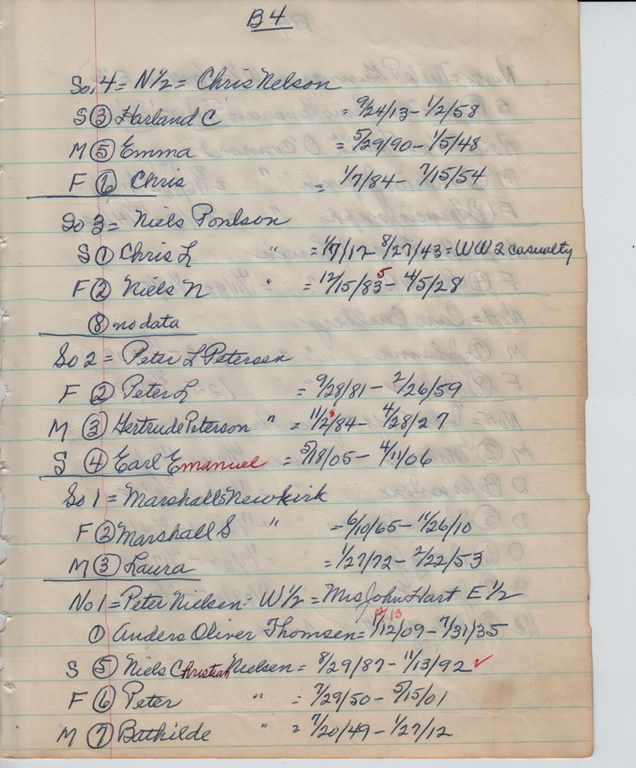 B4
So. 4 = N½ = Chris Nelson
S ③ Harland C = 9/24/13 - 1/2/58
M ⑤ Emma = 5/29/90 - 1/5/48
F ⑥ Chris = 1/7/84 - 7/15/54
So 3 = Niels Poulson
S ① Chris L " = 1/7/17 - 8/27/43 = WW2 casualty
F ② Niels N " = 12/15/83 5 - 4/5/28
⑧ no data
So 2 = Peter L Petersen
F ② Peter L = 9/28/81 - 2/26/59
M ③ Gertrude Peterson " = 11/2/84 - 4/28/27
S ④ Earl Emanuel = 5/18/05 - 4/11/06
So 1 = Marshall S Newkirk
F ② Marshall S " = 6/10/65 - 11/26/10
M ③ Laura = 1/27/72 - 2/22/53
No 1 = Peter Nielsen - W½ = Mrs John Hart E½
① Anders Oliver Thomsen = 1/12/09 - 7/31/35
S ⑤ Niels Christian Nielsen = 8/29/87 - 11/13/92 ✓
F ⑥ Peter " = 7/29/50 - 5/15/01
M ⑦ Bathilde " = 7/20/49 - 1/27/12